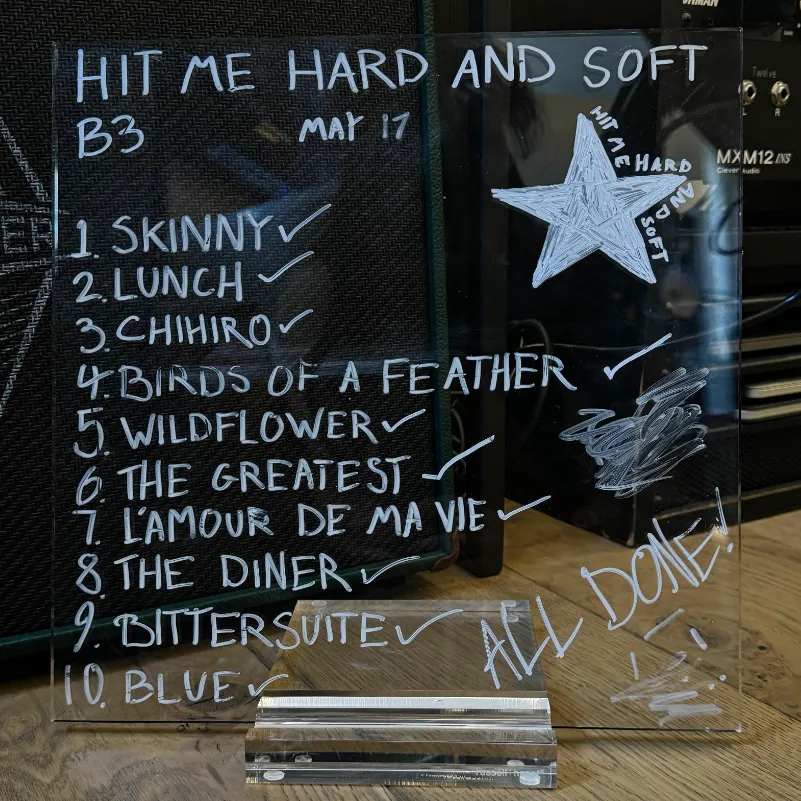 HIT ME HARD AND SOFT
B3 MAY 17
HIT ME HARD AND SOFT
1. SKINNY ✓
2. LUNCH ✓
3. CHIHIRO ✓
4. BIRDS OF A FEATHER ✓
5. WILDFLOWER ✓
6. THE GREATEST ✓
7. L'AMOUR DE MA VIE ✓
8. THE DINER ✓
9. BITTERSUITE ✓
10. BLUE ✓
ALL DONE!
Twelve
L R
MXM12 INS
Clever Audio